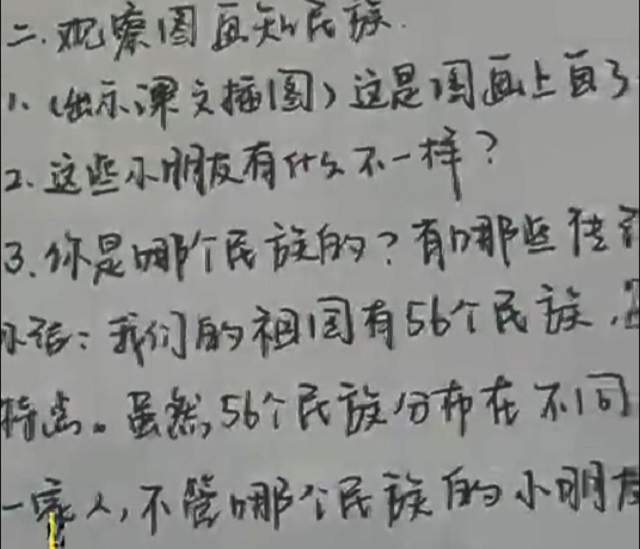 二.观察图画知民族.
1.(出示课文插图)这是图画上画了
2.这些小朋友有什么不一样?
3.你是哪个民族的?有哪些
小结:我们的祖国有56个民族,
特点。虽然56个民族分布在不同
一家人,不管哪个民族的小朋友